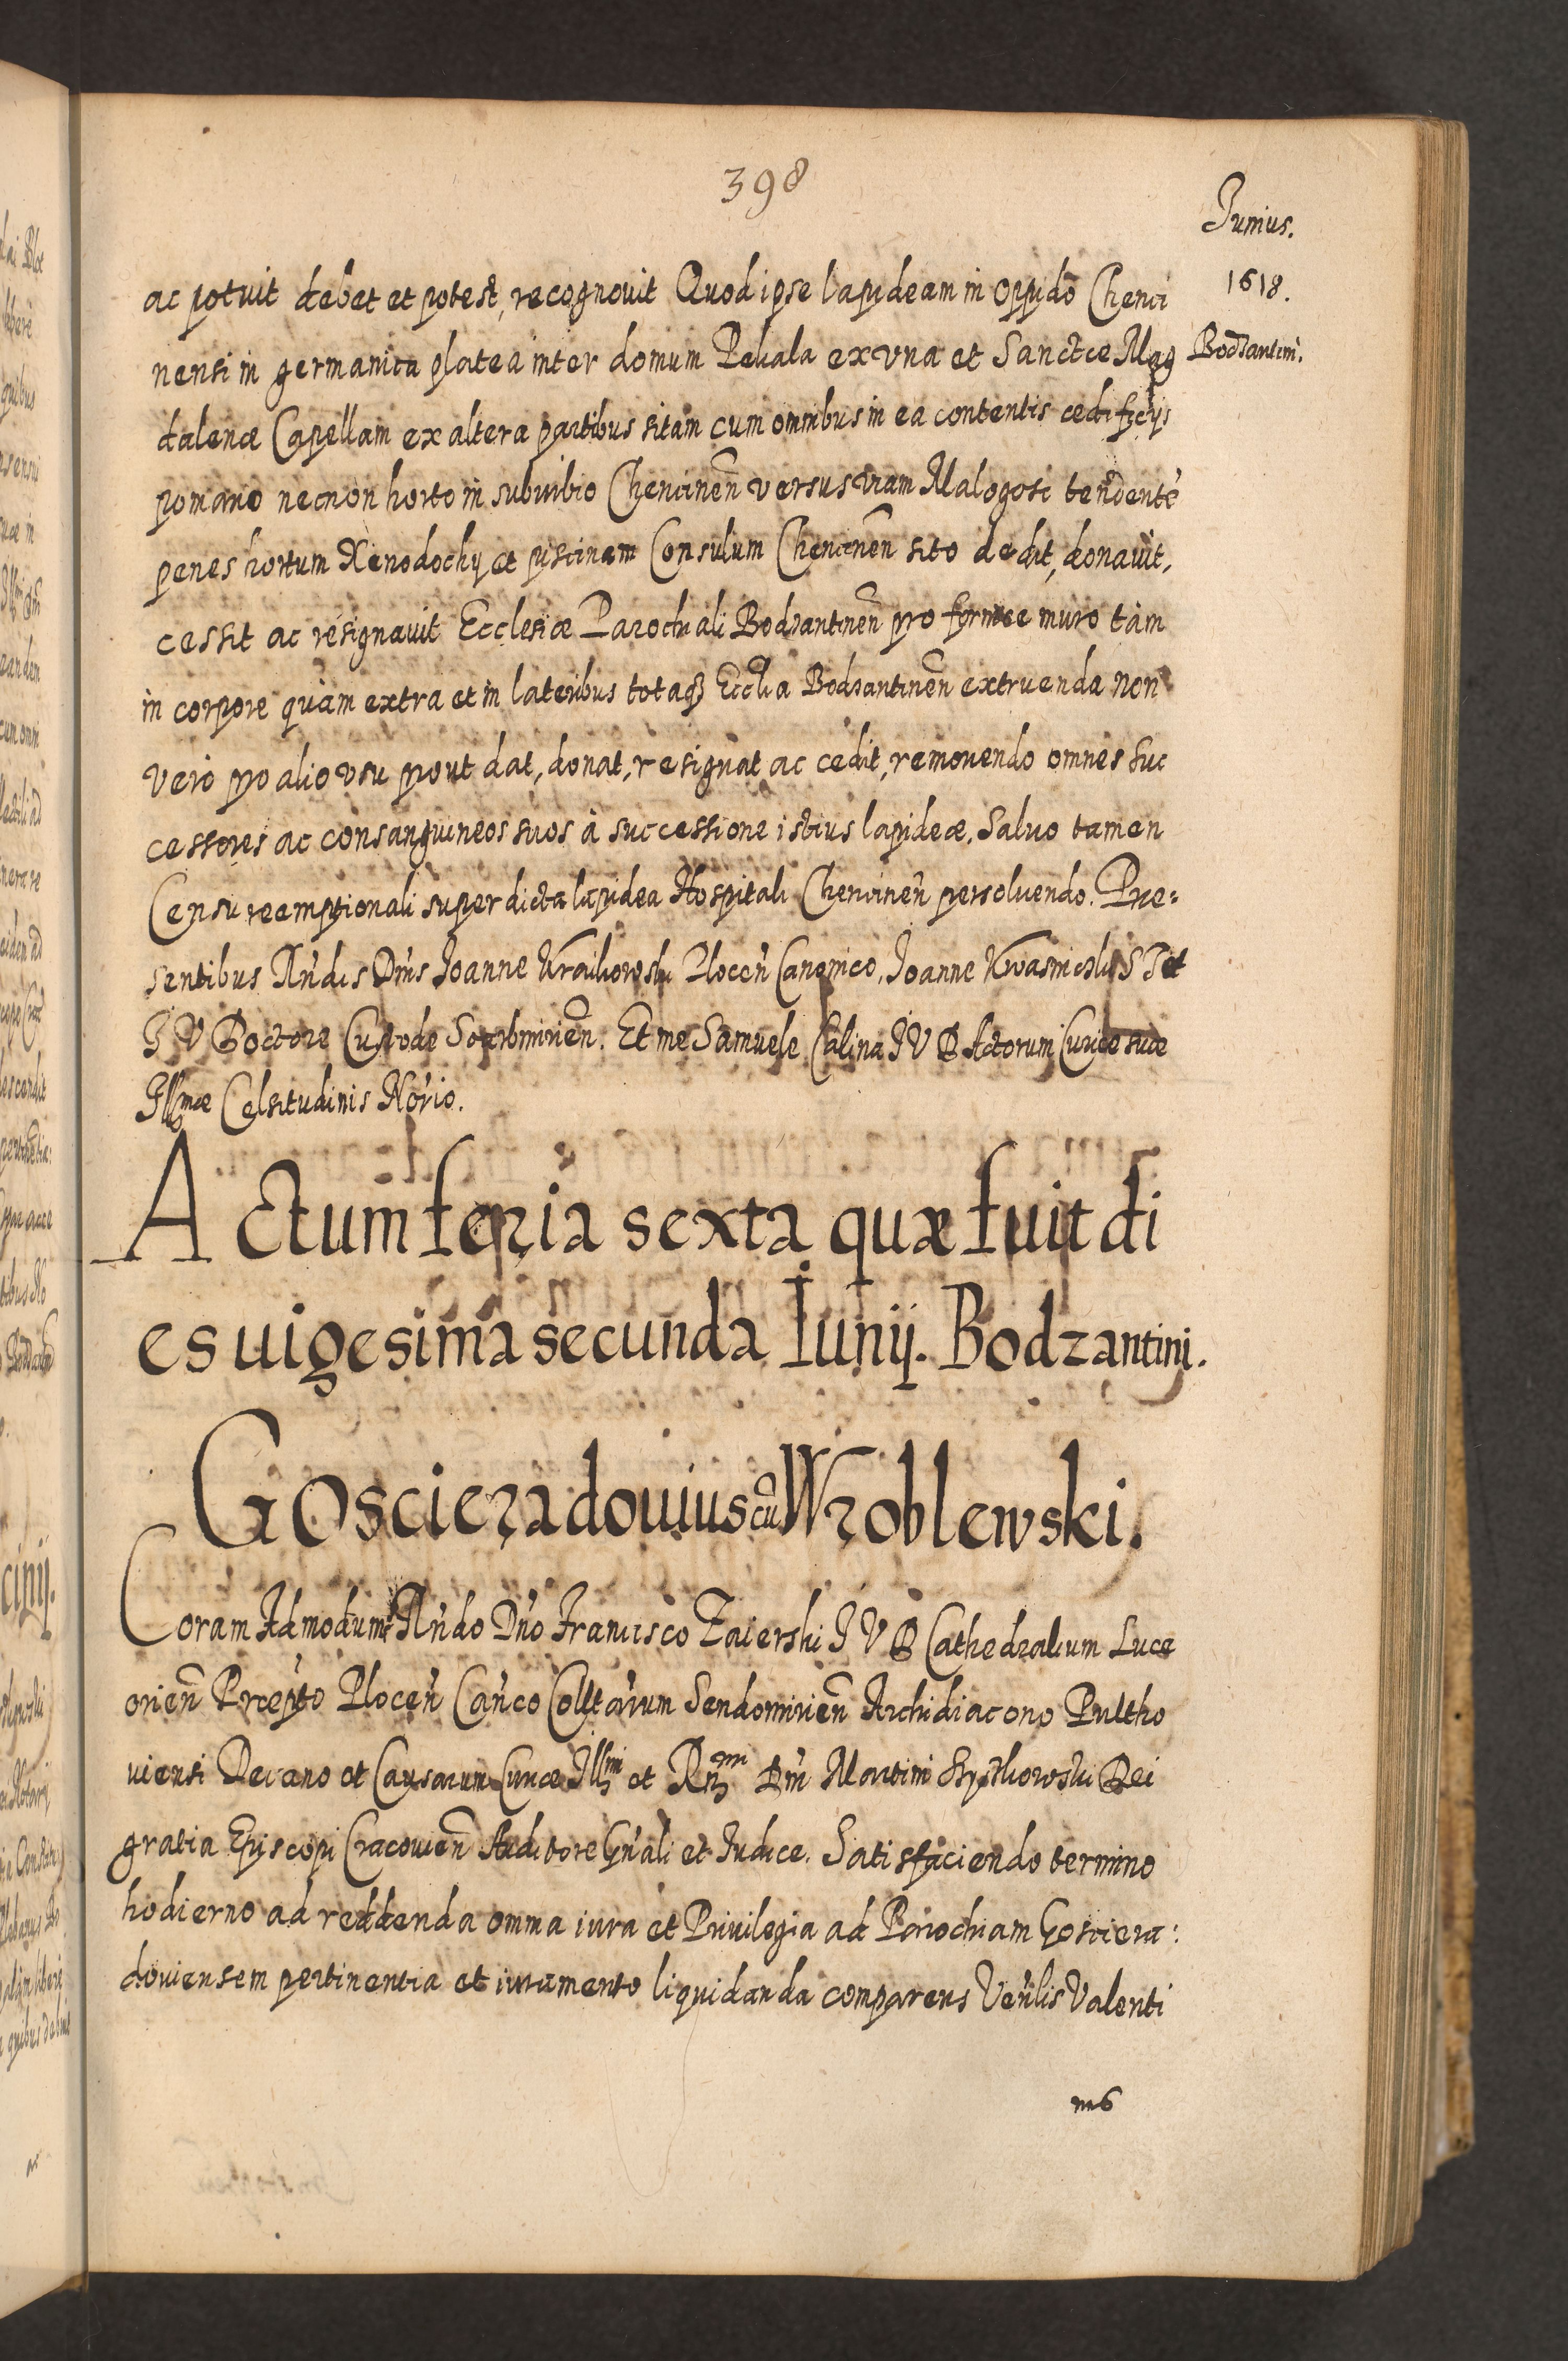 398
Junius.
1618.
Bodzantini.
ac potuit debet et potest, recognouit Quod ipse lapideam in oppido Chenci
nensi in germanica platea inter domum Pekala ex vna et Sanctæ Mag
dalenæ Capellam ex altera partibus sitam cum omnibus in ea contentis ædificijs
pomario necnon horto in suburbio Chencineñ versus viam Malogosc tendente
penes hortum Xenodochij et piscinam Consulum Chencineñ sito dedit, donauit,
cessit ac resignauit Ecclesiæ Parochiali Bodzantineñ pro fornice muro tàm
in corpore quàm extra et in lateribus totaq3 Ecclia Bodzantineñ extruenda non
vero pro alio vsu prout dat, donat, resignat ac cedit, remouendo omnes suc
cessores ac consanguineos suos à successione istius lapideæ, Saluo tamen
Censu reemptionali super dicta lapidea Hospitali Chencineñ persoluendo. Præ=
sentibus Rñdis Dñis Joanne Kraikowski Ploceñ Canonico, Joanne Kwasnicki S T et
J V Doctore Custode Scarbimirieñ. Et me Samuele Calina J V D Actorum Curiæ suæ
Jllmæ Celsitudinis Nōrio.
Actum feria sexta quæ fuit di
es uigesima secunda Iunij. Bodzantini.
Goscieradouius cū Wroblewski.
Coram Admodum Rñdo Dño Francisco Zaierski J V D Cathedralium Luce
orieñ Præpto Ploceñ Cañco Colltarum Sendomirieñ Archidiacono Pultho
uiensi Decano et Causarum Curiæ Jllmi et Rñmi Dñi Martini Szyszkowski Dei
gratia Episcopi Cracouieñ Auditore Gñali et Judice. Satisfaciendo termino
hodierno ad reddenda omnia iura et Priuilegia ad Parochiam Gosciera=
douiensem pertinentia et iuramento liquidanda comparens Veñlis Valenti
nus